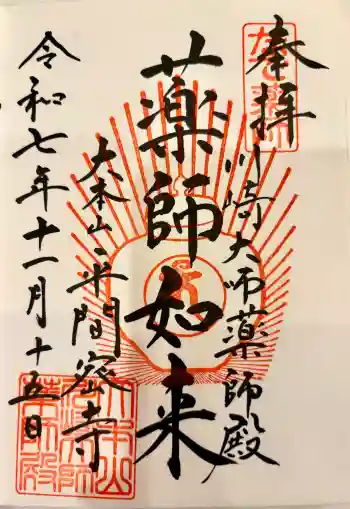 奉拝
川崎大师薬師殿
薬師如来
大本山平間密寺
令和七年十一月十五日